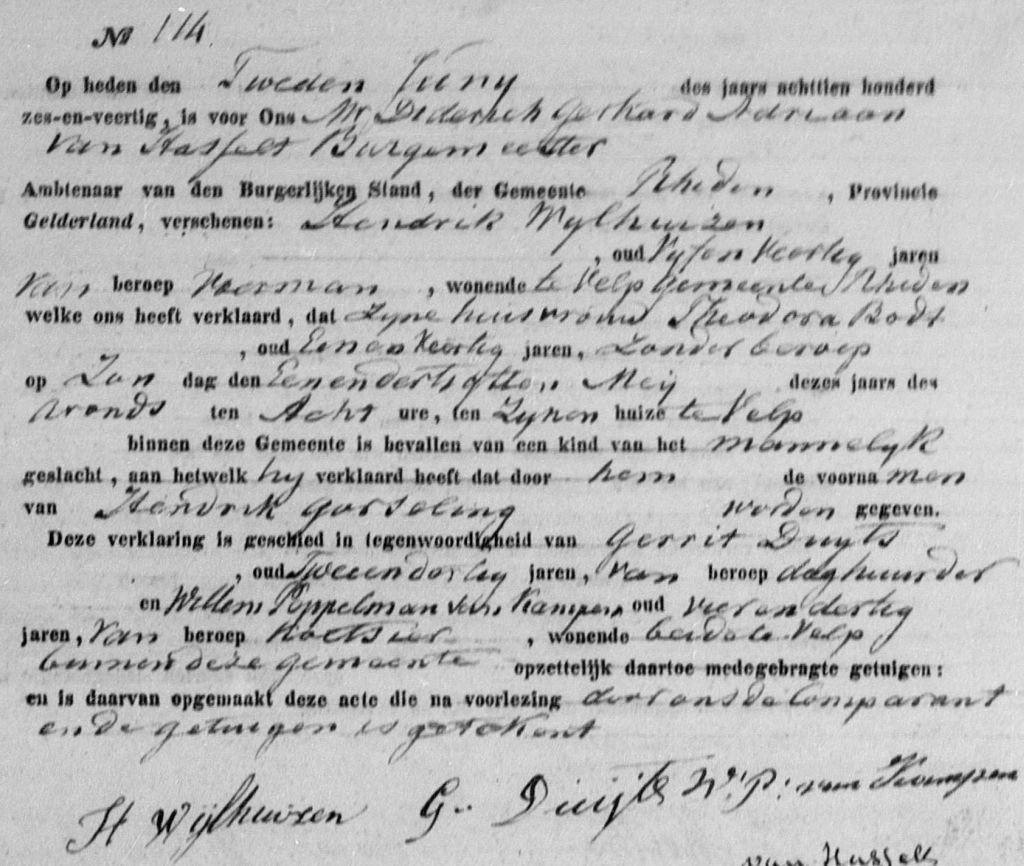 No 114.
Op heden den Tweden Juny des jaars achttien honderd
zes-en-veertig, is voor Ons Mr Dederich Gerhard Adriaan
Van Hasselt Burgemeester
Ambtenaar van den Burgerlijken Stand, der Gemeente Rheden, Provincie
Gelderland, verschenen: Hendrik Wylhuizen
, oud Vyfen Veertig jaren
Van beroep Voerman, wonende te Velp Gemeente Rheden
welke ons heeft verklaard, dat Zyne huisvrouw Theodora Bodt
, oud Eenen Veertig jaren, Zonder beroep
op Zon dag den Eenendertigsten Mey dezes jaars des
avonds ten Acht ure, ten Zynen huize te Velp
binnen deze Gemeente is bevallen van een kind van het mannelyk
geslacht, aan hetwelk hy verklaard heeft dat door hem de voorna men
van Hendrik Gosseling worden gegeven.
Deze verklaring is geschied in tegenwoordigheid van Gerrit Duyts
, oud Tweeendertig jaren, Van beroep daghuurder
en Willem Poppelman van Kampen oud vierendertig
jaren, Van beroep Koetsier, wonende beide te Velp
binnen deze gemeente opzettelijk daartoe medegebragte getuigen:
en is daarvan opgemaakt deze acte die na voorlezing door ons de Comparant
en de getuigen is getekent
H Wijlhuizen G. Duijts W: P: van Kampen
van Hasselt